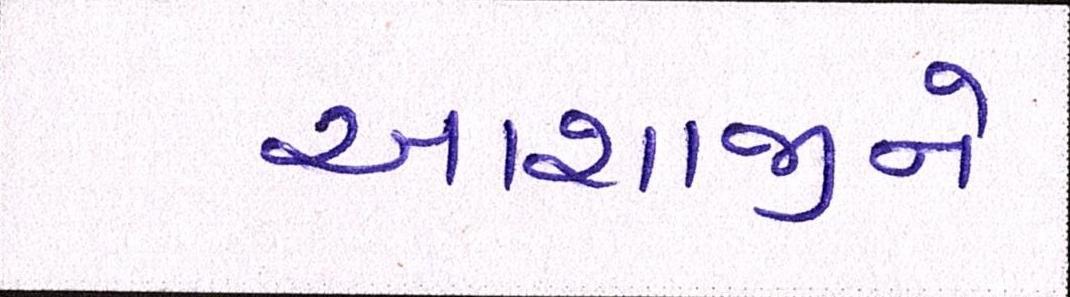 આશાજીને